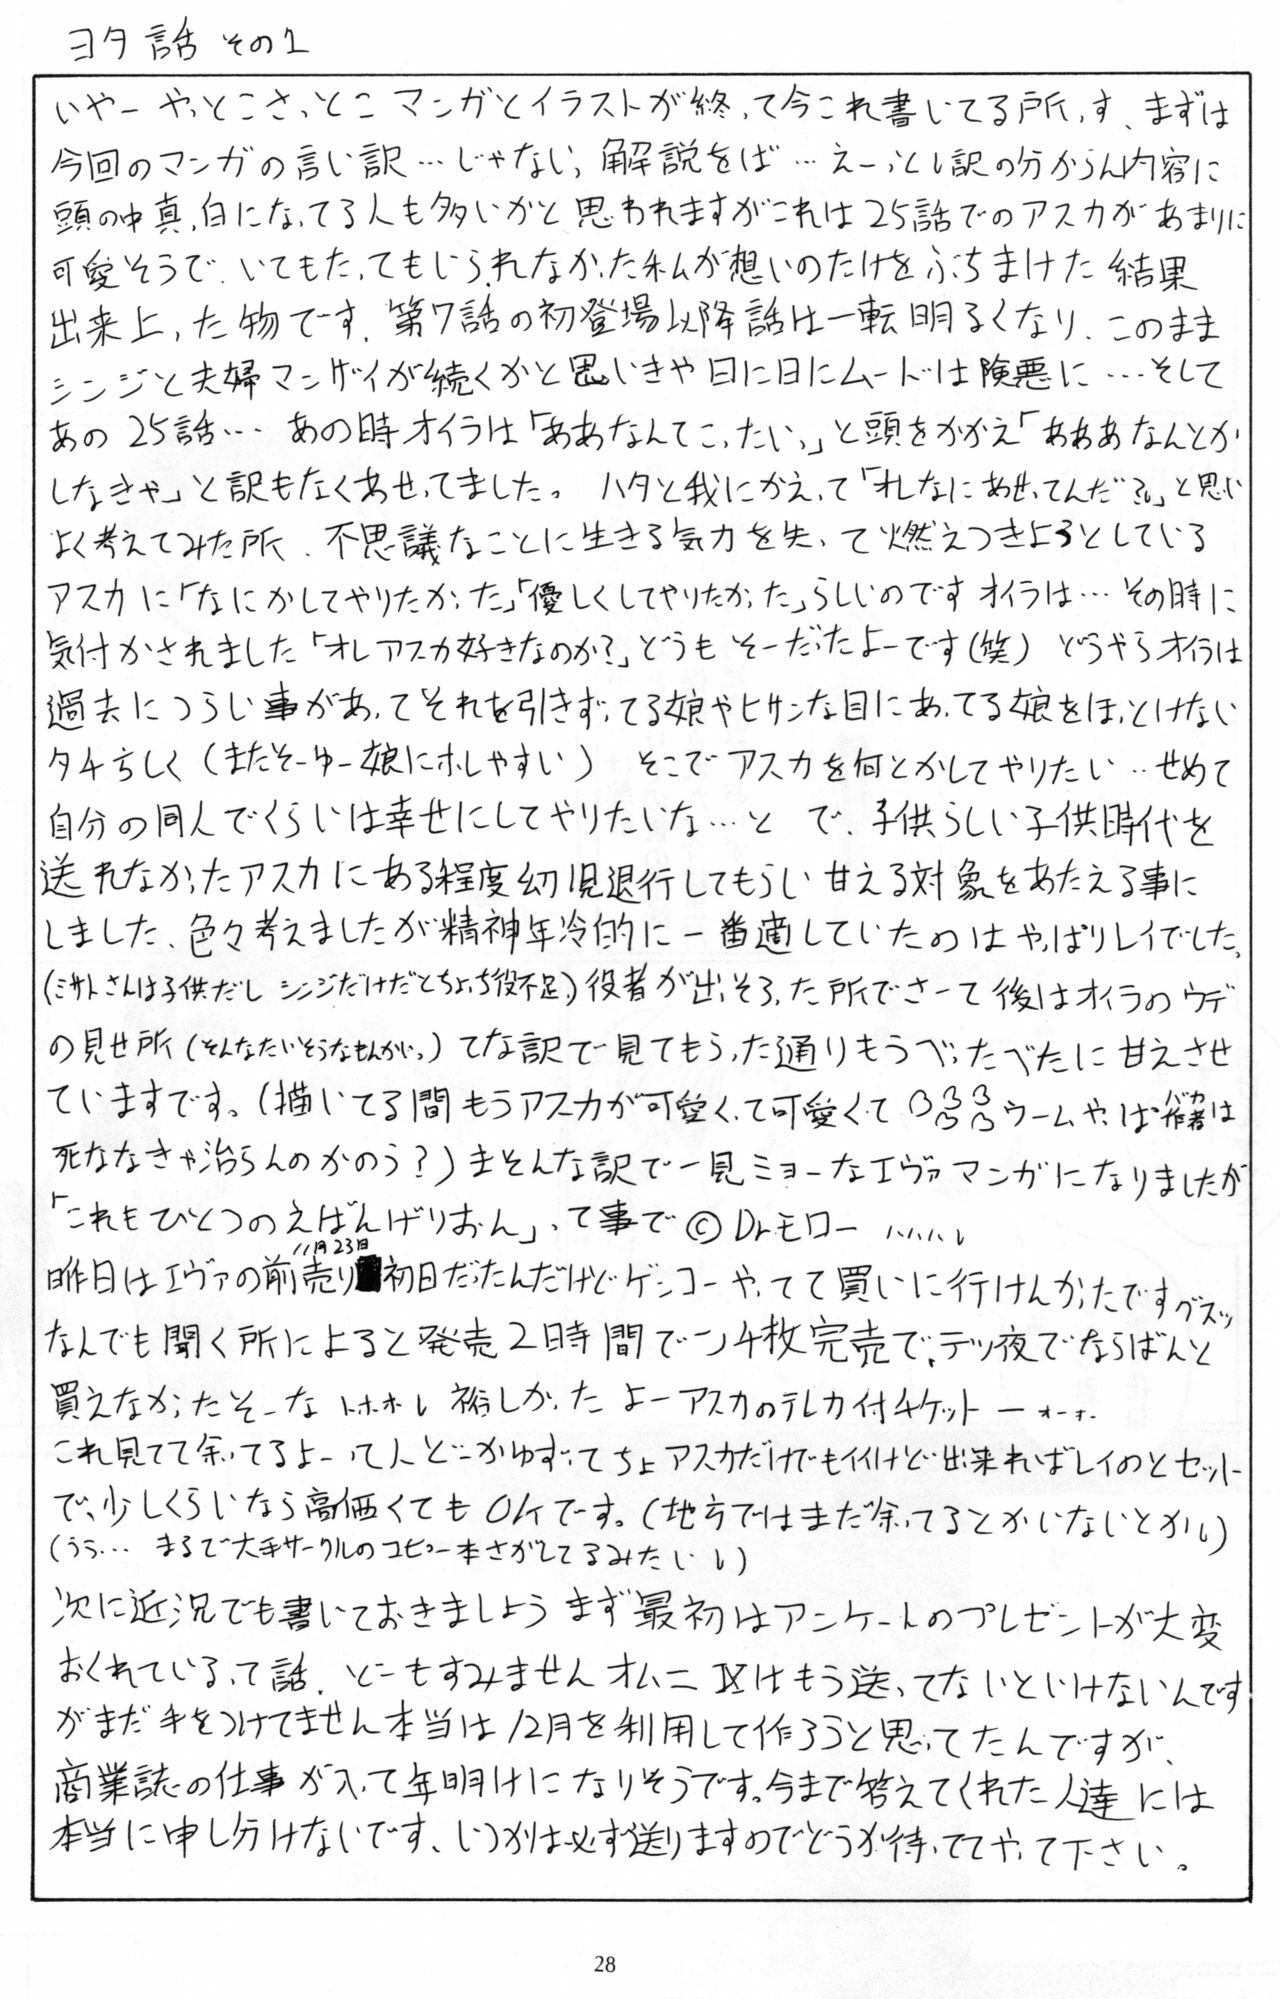 ヨタ話 その1
いやー やっとこさっとこ マンガとイラストが終って今これ書いてる所っす、まずは
今回のマンガの言い訳…じゃない、解説をば…えーっとい訳の分からん内容に
頭の中真っ白になってる人も多いかと思われますがこれは25話でのアスカがあまりに
可愛そうで、いてもたってもいられなかった私が想いのたけをぶちまけた結果
出来上った物です、第7話の初登場以降話は一転明るくなり、このまま
シンジと夫婦マンザイが続くかと思いきや日に日にムードは険悪に…そして
あの25話… あの時オイラは「ああなんてこったいっ」と頭をかかえ「あああなんとか
しなきゃ」と訳もなくあせってました。 ハタと我にかえって「オレなにあせってんだろ」と思い
よく考えてみた所、不思議なことに生きる気力を失って燃えつきようとしている
アスカに「なにかしてやりたかった」「優しくしてやりたかった」らしいのですオイラは…その時に
気付かされました「オレアスカ好きなのか?」どうもそーだったよーです(笑) どうやらオイラは
過去につらい事があってそれを引きずってる娘やヒサンな目にあってる娘をほっとけない
タチらしく(またそーゆー娘にホレやすい) そこでアスカを何とかしてやりたい‥せめて
自分の同人でくらいは幸せにしてやりたいな…と で、子供らしい子供時代を
送れなかったアスカにある程度幼児退行してもらい甘える対象をあたえる事に
しました、色々考えましたが精神年冷的に一番適していたのはやっぱりレイでした。
(ミサトさんは子供だし シンジだけだとちょっち役不足) 役者が出そろった所でさーて後はオイラのウデ
の見せ所(そんなたいそうなもんかいっ)てな訳で見てもらった通りもうべったべたに甘えさせ
ていますです。(描いてる間もうアスカが可愛くって可愛くて ウームやっぱ作者バカは
死ななきゃ治らんのかのう?)まそんな訳で一見ミョーなエヴァマンガになりましたが
「これもひとつのえばんげりおん」って事で ©Dr.モロー
昨日はエヴァの前売り11月23日初日だったんだけどゲンコーやってて買いに行けんかったですグスッ
なんでも聞く所によると発売2時間で一ノ千枚完売で、テツ夜でならばんと
買えなかったそーな トホホい 欲しかったよーアスカのテレカ付チケットーォーォー
これ見てて余ってるよーって人どーかゆずってちょ アスカだけでもイイけど出来ればレイのとセット
で、少しくらいなら高価くてもOKです。(地方ではまだ余ってるとかいないとかい)
(うう… まるで大手サークルのコピー本さがしてるみたいい)
次に近況でも書いておきましょう まず最初はアンケートのプレゼントが大変
おくれているって話、どーもすみませんオムニⅨはもう送ってないといけないんです
がまだ手をつけてません本当は12月を利用して作ろうと思ってたんですが、
商業誌の仕事が入って年明けになりそうです。今まで答えてくれた人達には
本当に申し分けないです、いつかは必ず送りますのでどうか待っててやって下さい。
28